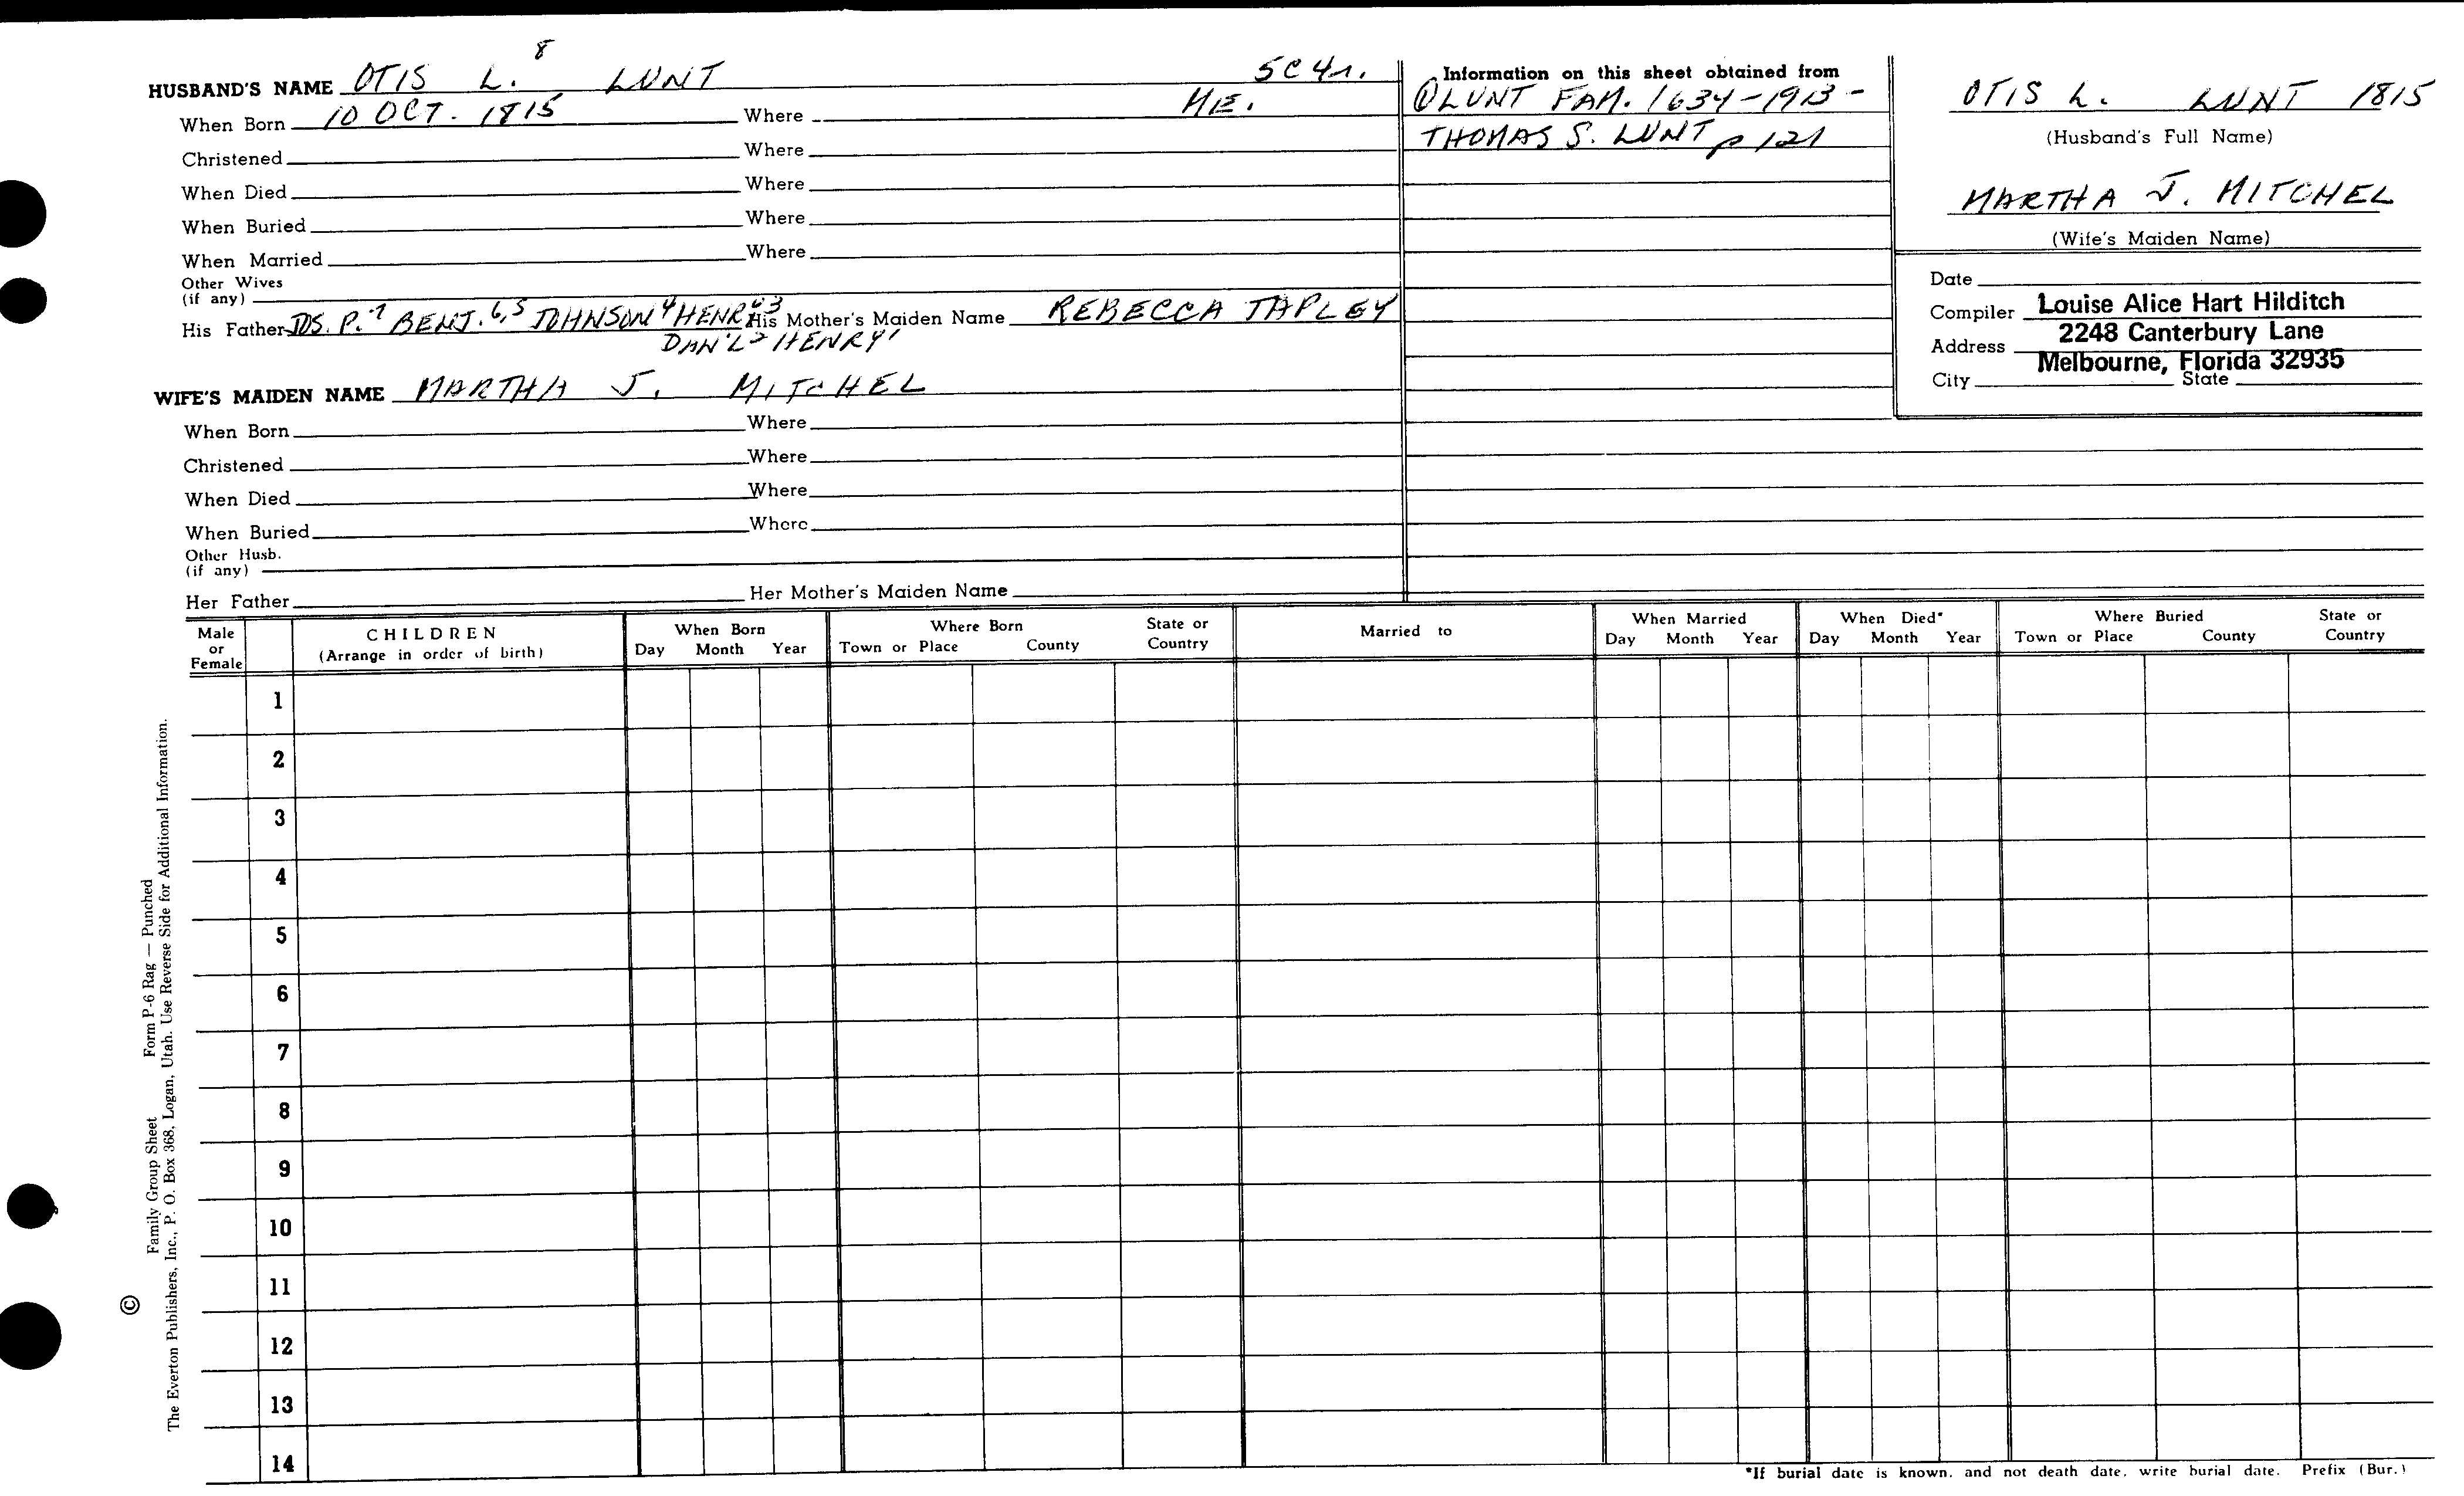 HUSBAND'S NAME OTIS L.⁸ LUNT 5C4
When Born 10 OCT. 1815 Where ME.
Christened Where
When Died Where
When Buried Where
When Married Where
Other Wives
(if any)
His Father JOS. P.⁷ BENJ.⁶,⁵ JOHNSON⁴ HENRY³ His Mother's Maiden Name REBECCA TAPLEY
DAN'L² HENRY¹
WIFE'S MAIDEN NAME MARTHA J. MITCHEL
When Born Where
Christened Where
When Died Where
When Buried Where
Other Husb.
(if any)
Her Father Her Mother's Maiden Name
Information on this sheet obtained from
① LUNT FAM. 1634-1913-
THOMAS S. LUNT p 121
OTIS L. LUNT 1815
(Husband's Full Name)
MARTHA J. MITCHEL
(Wife's Maiden Name)
Date
Compiler Louise Alice Hart Hilditch
Address 2248 Canterbury Lane
Melbourne, Florida 32935
City State
Male or Female CHILDREN (Arrange in order of birth) When Born Day Month Year Where Born Town or Place County State or Country Married to When Married Day Month Year When Died* Day Month Year Where Buried Town or Place County State or Country
1
2
3
4
5
6
7
8
9
10
11
12
13
14
*If burial date is known, and not death date, write burial date. Prefix (Bur.)
© Family Group Sheet Form P-6 Rag — Punched
The Everton Publishers, Inc., P. O. Box 368, Logan, Utah. Use Reverse Side for Additional Information.